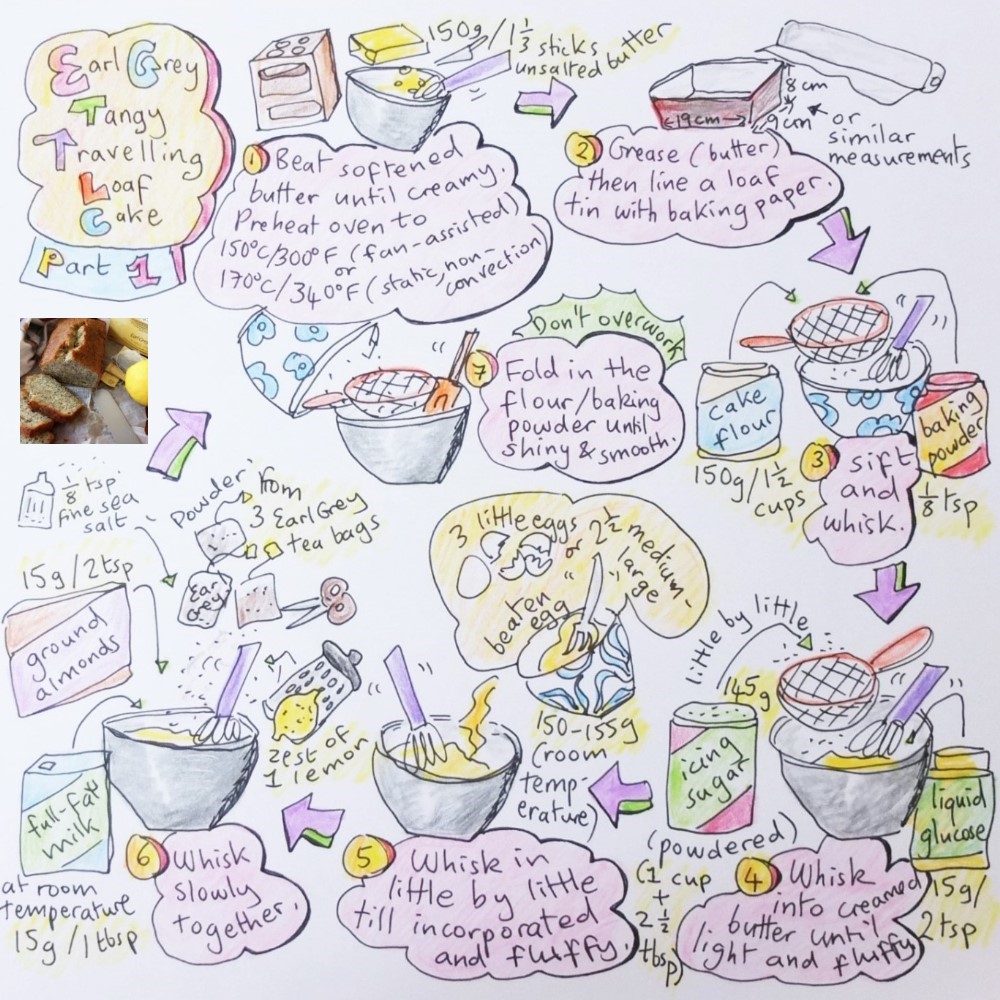 Earl Grey
Tangy
Travelling
Loaf
Cake
Part 1
150g/1 1/3 sticks
unsalted butter
1 Beat softened
butter until creamy.
Preheat oven to
150°C/300°F (fan-assisted)
or
170°C/340°F (static, non-
convection
8 cm
19cm
9cm
or
similar
measurements
2 Grease (butter)
then line a loaf
tin with baking paper.
cake
flour
150g/1 1/2
cups
baking
powder
1/8 tsp
3 sift
and
whisk.
little by little
145g
icing
sugar
(powdered)
(1 cup
+
2 1/2
tbsp)
liquid
glucose
15g/
2 tsp
4 Whisk
into creamed
butter until
light and fluffy
3 little eggs
or 2 1/2 medium-
large
beaten
egg
150-155g
(room
temp-
erature)
5 Whisk in
little by little
till incorporated
and fluffy.
1/8 tsp
fine sea
salt
powder from
3 Earl Grey
tea bags
Earl
Grey
15g/2tsp
ground
almonds
zest of
1 lemon
full-fat
milk
at room
temperature
15g/1tbsp
6 Whisk
slowly
together.
Don't overwork
7 Fold in the
flour/baking
powder until
shiny & smooth.